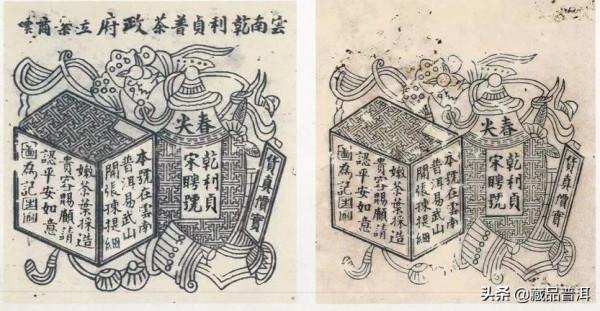 雲南乾利貞普茶政府立案商嘜
春尖
乾利貞
宋聘號
貨真價實
本號在雲南
普洱易武山
開張揀提細
嫩茶葉採造
貴客賜顧請
認平安如意
圖為記
春尖
乾利貞
宋聘號
貨真價實
本號在雲南
普洱易武山
開張揀提細
嫩茶葉採造
貴客賜顧請
認平安如意
圖為記
头条 @藏品普洱